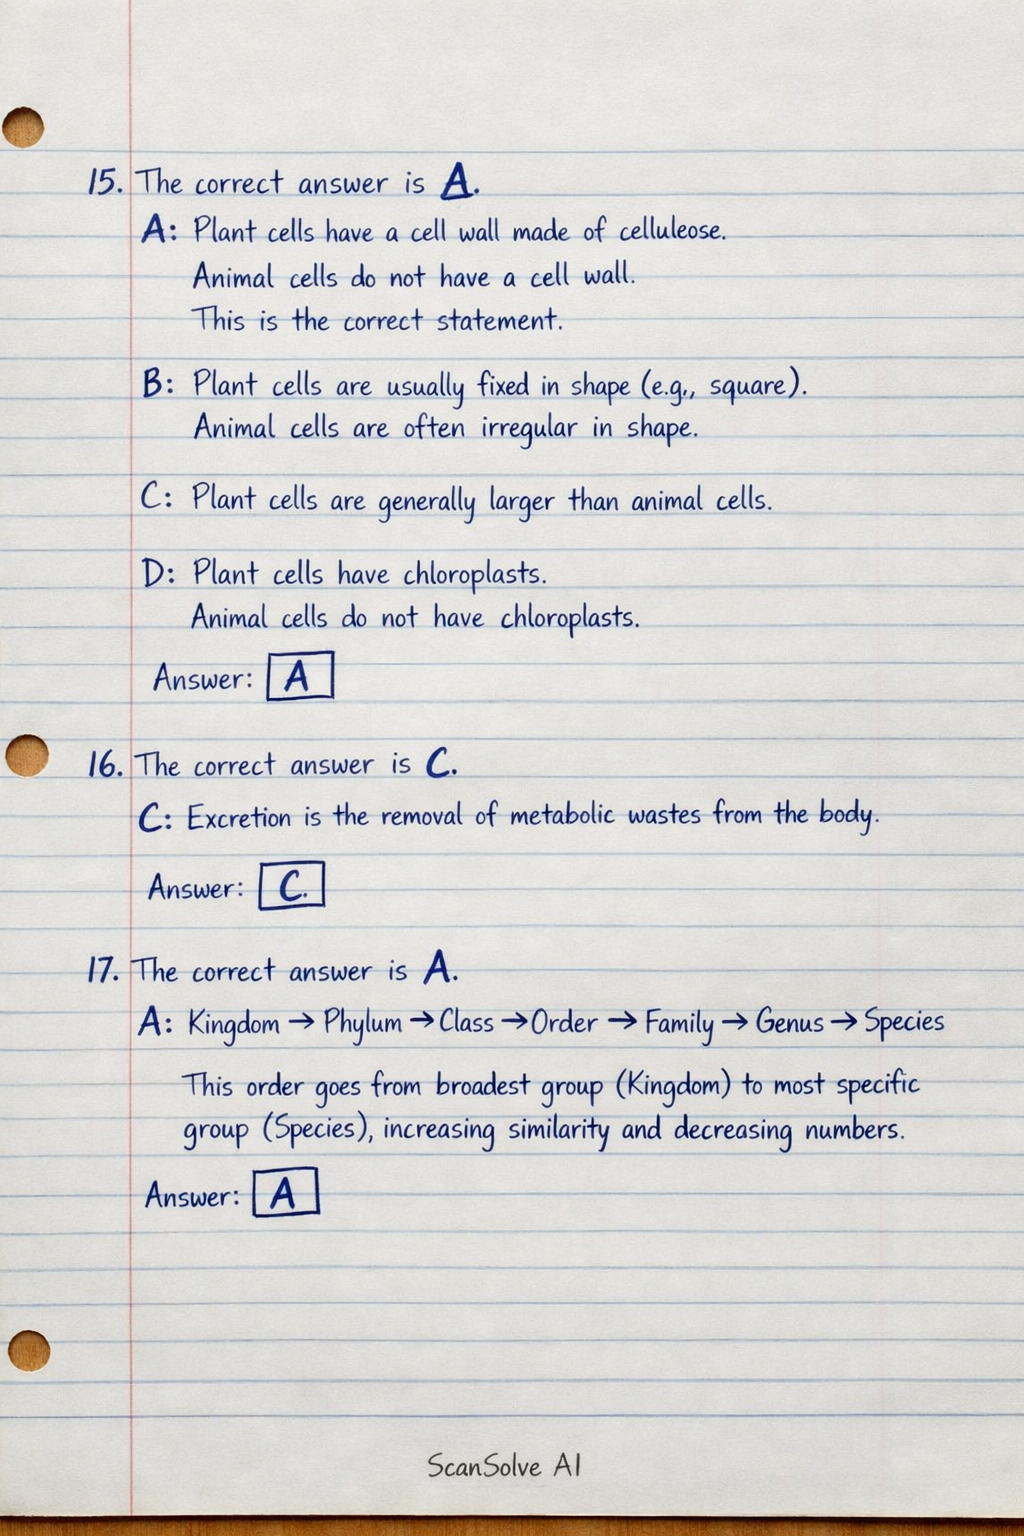 15. The correct answer is A.
A: Plant cells have a cell wall made of celluleose.
Animal cells do not have a cell wall.
This is the correct statement.
B: Plant cells are usually fixed in shape (e.g., square).
Animal cells are often irregular in shape.
C: Plant cells are generally larger than animal cells.
D: Plant cells have chloroplasts.
Animal cells do not have chloroplasts.
Answer: A
16. The correct answer is C.
C: Excretion is the removal of metabolic wastes from the body.
Answer: C.
17. The correct answer is A.
A: Kingdom → Phylum → Class → Order → Family → Genus → Species
This order goes from broadest group (Kingdom) to most specific
group (Species), increasing similarity and decreasing numbers.
Answer: A
ScanSolve AI